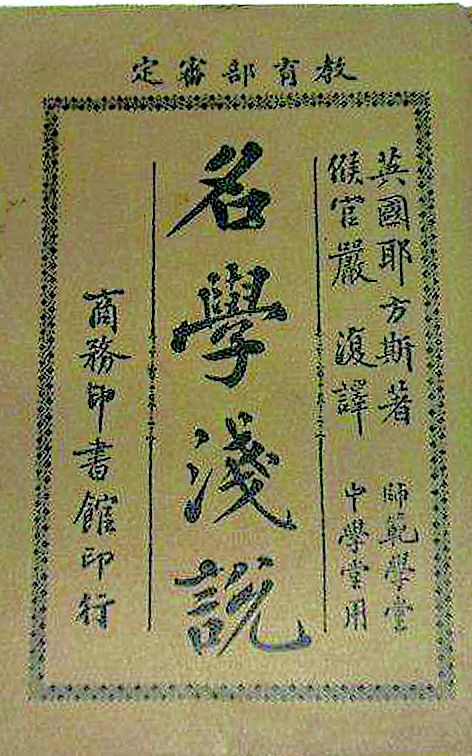 教育部審定
英國耶方斯著
師範學堂
候官嚴復譯
中學堂用
名學淺說
商務印書館印行